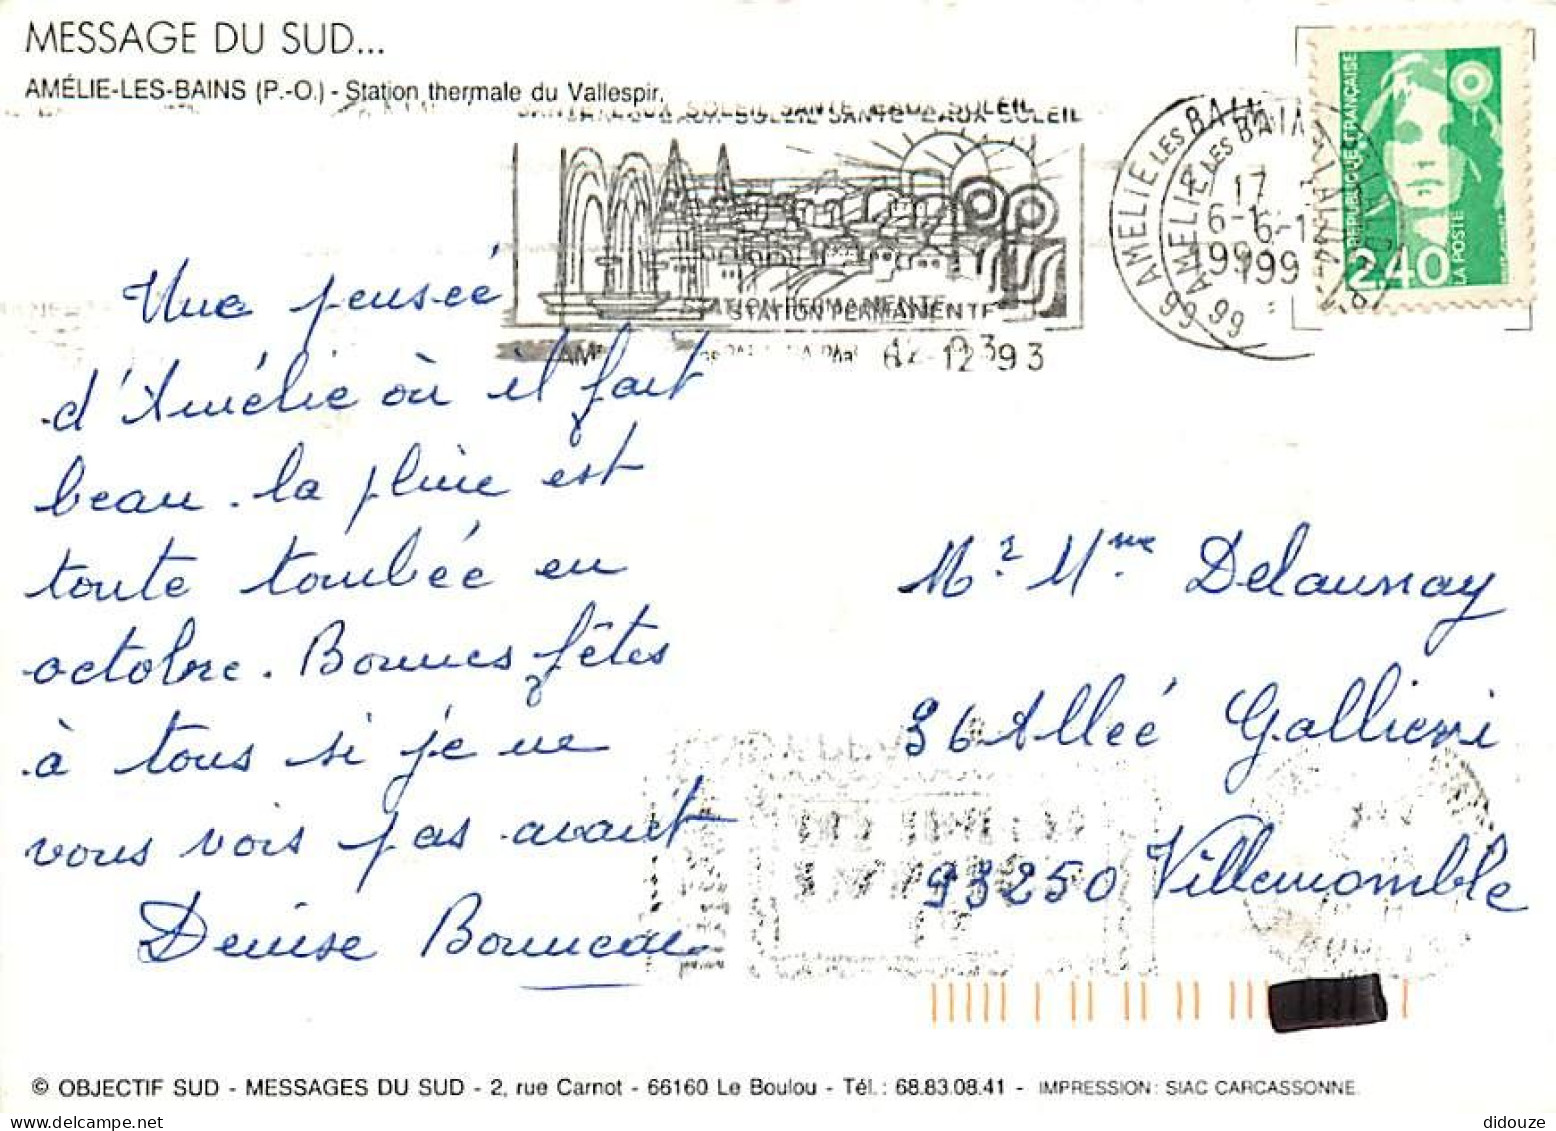 MESSAGE DU SUD...
AMÉLIE-LES-BAINS (P.-O.) - Station thermale du Vallespir.
SANTE EAUX SOLEIL SANTE EAUX SOLEIL
STATION PERMANENTE
STATION PERMANENTE
6-12-93
AMELIE LES BAINS
AMELIE LES BAINS
17
6-1
6-1
199
199
66
66
REPUBLIQUE FRANÇAISE
2,40
LA POSTE
Une pensée
d'Amélie où il fait
beau. la pluie est
toute tombée en
octobre. Bonnes fêtes
à tous si je ne
vous vois pas avant
Denise Bonneau
Mr. Mme Delaunay
36 Allée Gallieni
93250 Villemomble
© OBJECTIF SUD - MESSAGES DU SUD - 2, rue Carnot - 66160 Le Boulou - Tél.: 68.83.08.41 - IMPRESSION: SIAC CARCASSONNE.
didouze